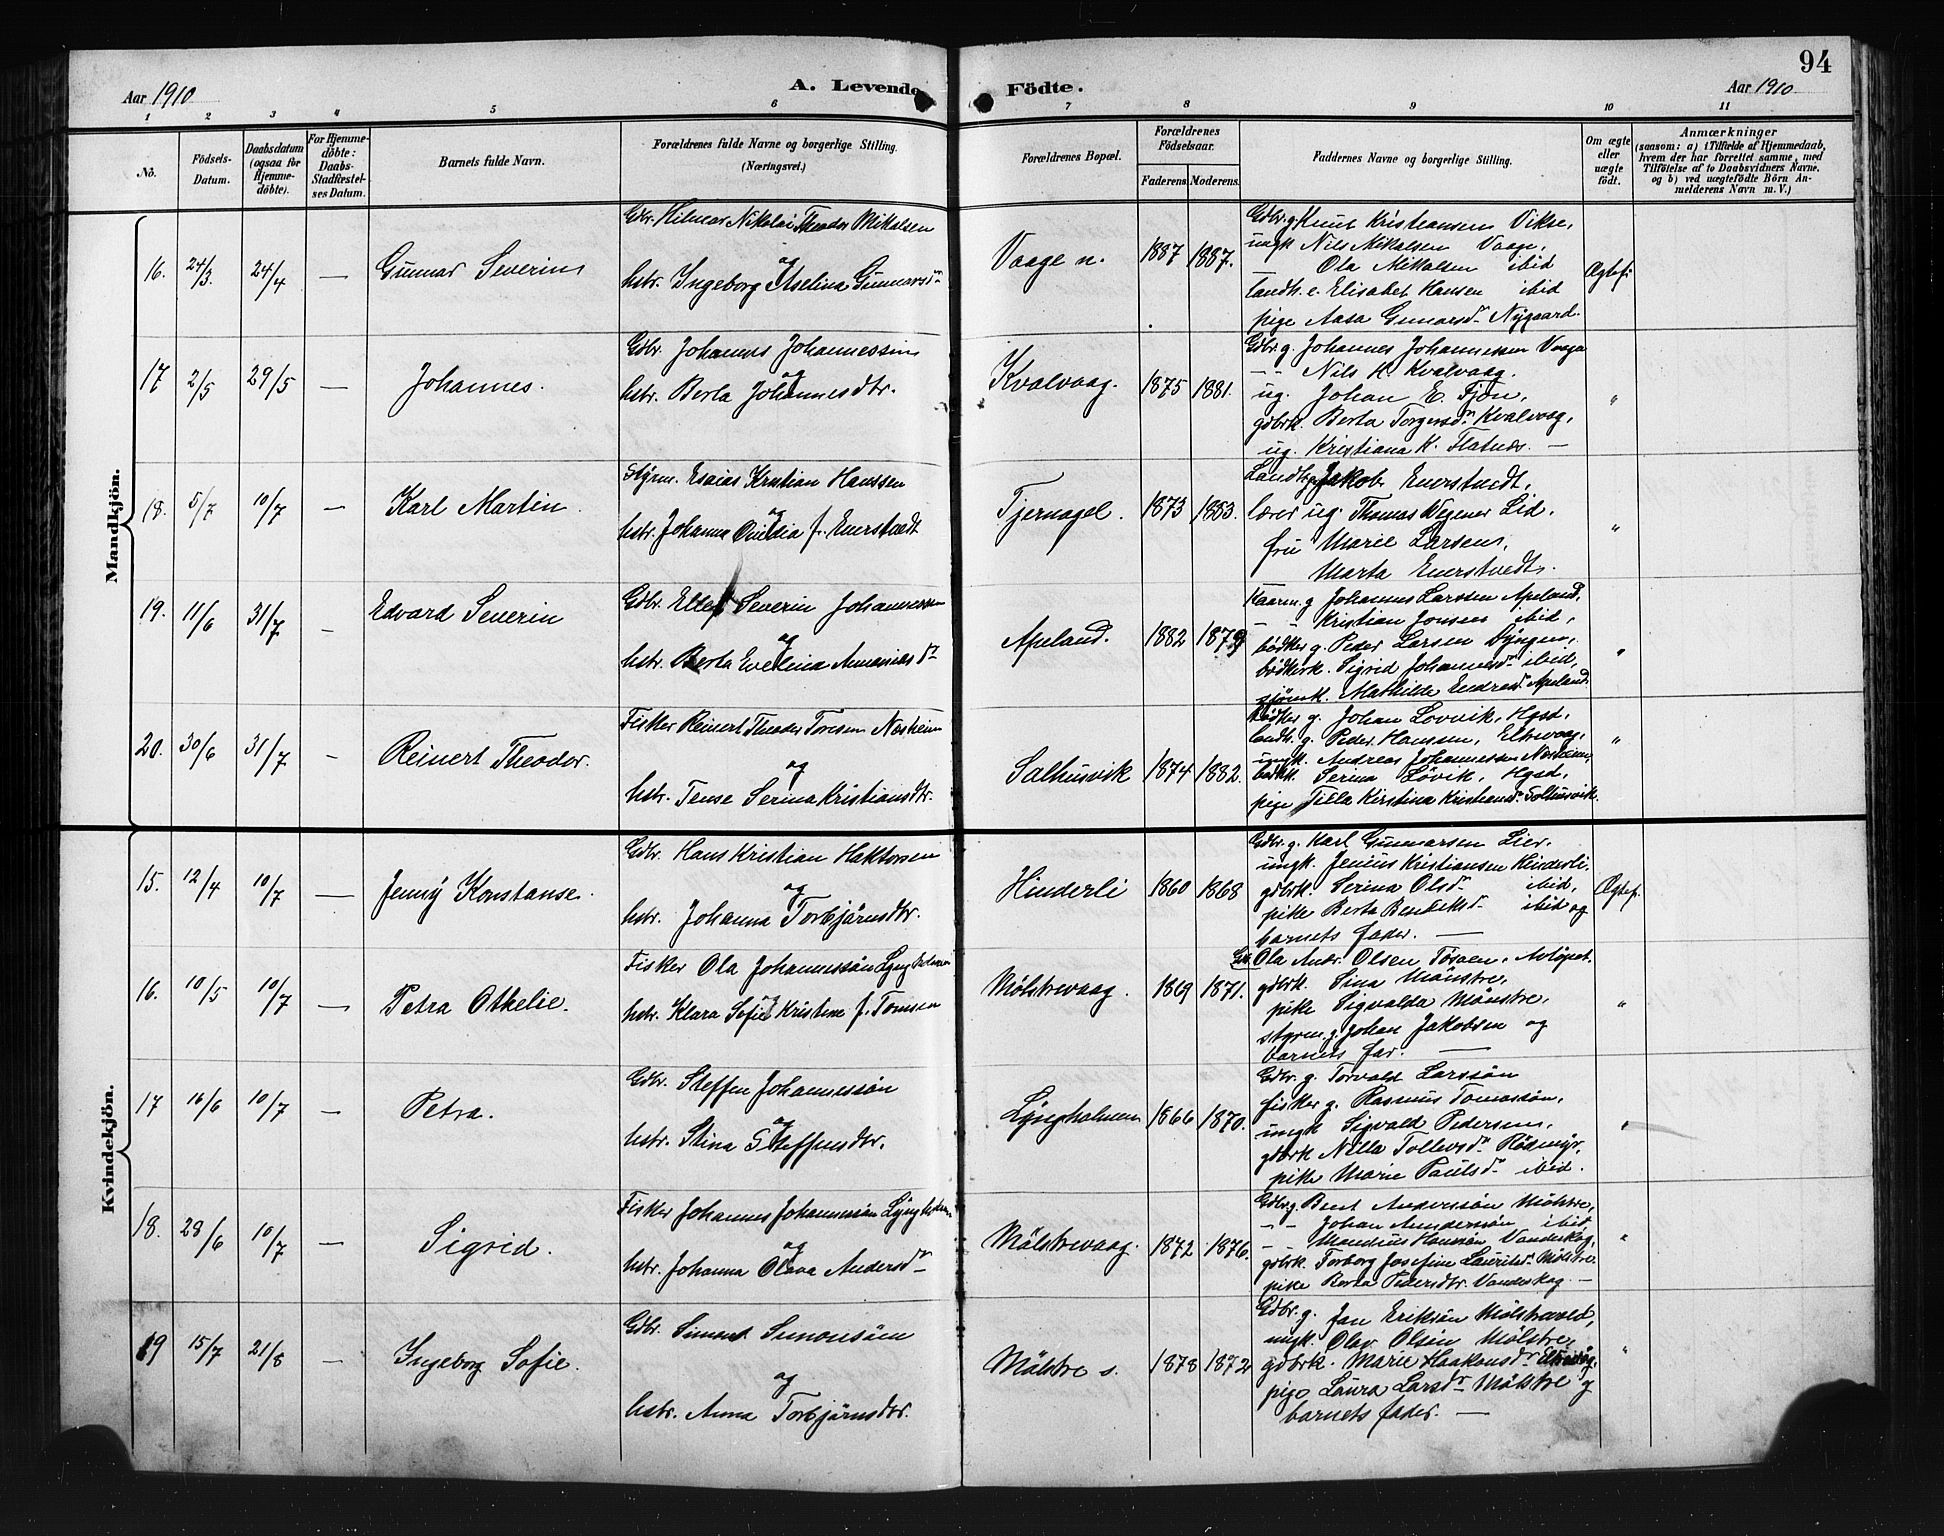 94
Aar 1910
A. Levende Födte.
Aar 1910
1 2 3 4 5 6 7 8 9 10 11
No.
Födsels-Datum.
Daabsdatum (ogsaa för Hjemmedöbte).
For Hjemmedöbte: Daabs-Stadfæstelses Datum.
Barnets fulde Navn.
Forældrenes fulde Navne og borgerlige Stilling.
(Næringsvei.)
Forældrenes Bopæl.
Forældrenes Födselsaar.
Faderens. Moderens.
Faddernes Navne og borgerlige Stilling.
Om ægte eller uægte födt.
Anmærkninger
(saasom: a) i Tilfælde af Hjemmedaab, hvem der har forrettet samme, med Tilföielse af to Daabsvidners Navne, og b) ved uægtefödte Börn Anmelderens Navn m. V.)
Mandkjön.
16. 24/3. 24/4 — Gunnar Severin
Gdbr. Hilmar Nikolai Theodor Mikalsen
og
hstr. Ingeborg Aselina Gunnarsdr
Vaage n. 1887 1887.
Gdbr. g. Knut Kristiansen Vikse,
ungk. Nils Mikalsen Vaage,
— Ola Mikalsen ibid
landh. e. Elisabet Hansen ibid
pige Aasa Gunarsdr Nygaard.
Ægtef.
17 2/5 29/5 — Johannes.
Gdbr. Johannes Johannessen
og
hstr. Berta Johannesdtr.
Kvalvaag. 1875 1881.
Gdbr. g. Johannes Johannessen Vaage
— - Nils K. Kvalvaag.
ug. Johan E. Fjon,
gdbrk. Berta Torgersdr Kvalvaag,
ug. Kristiana K. Flatnes. —
"
18. 5/7 10/7 — Karl Martin.
Styrm. Esaias Kristian Hanssen
og
hstr. Johanna Ovidia f. Enerstvedt
Tjernagel. 1873 1883.
Landh. g. Jakob Enerstvedt,
lærer ug. Thomas Wegener Lid,
fru Marie Larsen,
Marta Enerstvedt.
"
19. 11/6 31/7 — Edvard Severin
Gdbr. Ellef Severin Johannessen
og
hstr. Berta Evelina Ananiasdr
Apeland. 1882 1879
Kaarm. g Johannes Larssen Apeland,
— - Kristian Jonsen ibid,
bödker g. Peder Larsen Dyngen,
bödkerk. Sigrid Johannesdr ibid,
sjömk. Mathilde Endresdr Apeland.
"
20. 30/6 31/7 — Reinert Theodor.
Fisker Reinert Theodor Toresen Næsheim
og
hstr. Tense Serina Kristiansdtr.
Salhusvik 1874 1882.
Bödker g. Johan Lovvik, Hgsd,
landh. g. Peder Hansen, Eltrevaag,
ungk. Andreas Johannessen Næsheim,
bödkk. Serina Lövik, Hgsd,
pige Tilla Kirstina Kristiansdr Salhusvik.
"
Kvindekjön.
15. 12/4 10/7 — Jenny Konstanse.
Gdbr. Hans Kristian Haktorsen
og
hstr. Johanna Torbjörnsdtr.
Hinderli 1860 1868
Gdbr. g. Karl Gunnarsen Lier.
ungk. Jenius Kristiansen Hinderli.
gdbrk. Serina Olsdr ibid,
pike Berta Bendiksdr ibid og
barnets fader. —
Ægtef.
16. 10/5 10/7 — Petra Othelie.
Fisker Ola Johannessön Lyngholmen
og
hstr. Klara Sofie Kristine f. Tomsen
Mölstrevaag. 1869 1871.
Gdb. Ola Andr. Olsen
gdbrk. Sina Mönstre,
pike Sigvalda Mönstre,
styrm. g. Johan Jakobsen og
barnets far. —
"
17 16/6 10/7 — Petra.
Gdbr. Steffen Johannessön
og
hstr. Stina Steffensdtr.
Lyngholmen 1866 1870.
Gdbr. g. Torvald Larssön
fisker g. Rasmus Tomassön,
ungk Sigvald Pedersen,
gdbrk Nilla Tollevsdr Rödmyr,
pike Marie Paulsdr ibid.
"
18. 28/6 10/7 — Sigrid.
Fisker Johannes Johannessön Lyngholmen
og
hstr. Johanna Olava Andersdr
Mölstrevaag. 1872 1876.
Gdbr. g. Bent Anderssön Mölstre,
— - Johan Anderssön ibid,
— Mandius Hanssön Vandeskog,
gdbrk. Torborg Josefine Lauritsdr Mölstre
pike Berta Pedersdtr. Vandeskog —
"
19 15/7 21/8 — Ingeborg Sofie.
Gdbr. Simon Simonsön
og
hstr. Anna Torbjörnsdtr.
Mölstre s. 1878 1872
Gdbr. g. Jan Eriksön Mölstrevold,
ungk. Olav Olsen Mölstre,
gdbrk. Marie Haakonsdr
pige Laura Larsdr Mölstre og
barnets fader. —
"